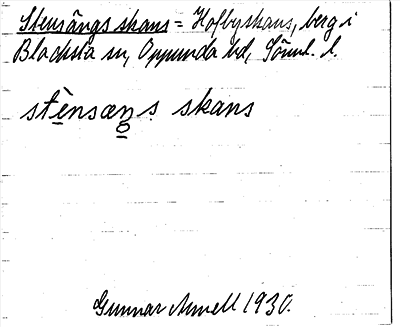 Stensängs skans = Hofbyskans, berg i
Blacksta sn, Oppunda hd, Söml. l.
stènsæŋs skans
Gunnar 1930.